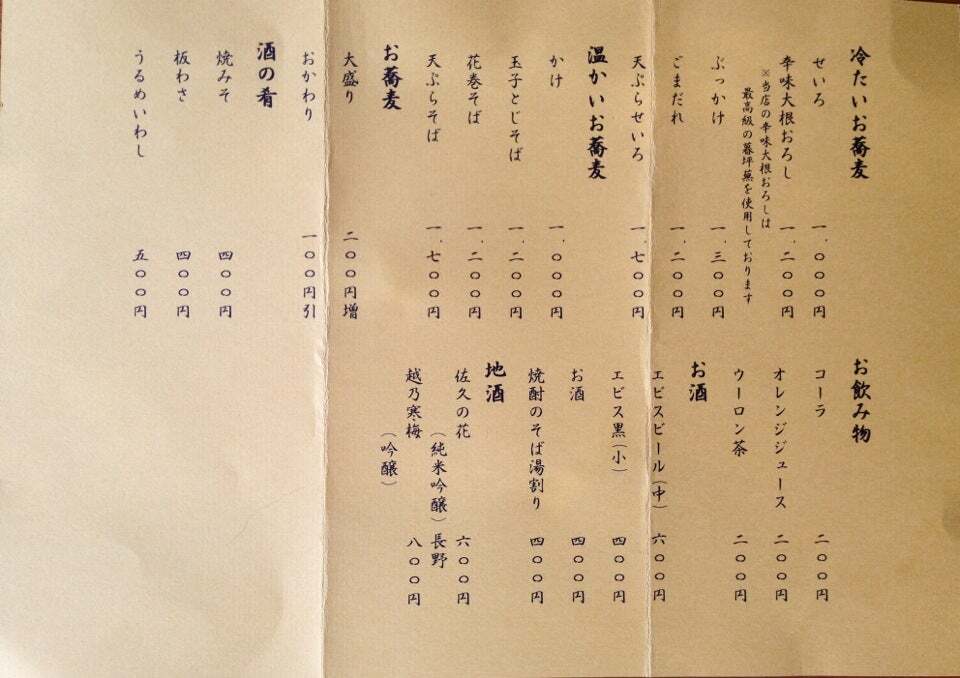 冷たいお蕎麦
せいろ 一、〇〇〇円
辛味大根おろし 一、二〇〇円
※当店の辛味大根おろしは
最高級の暮坪蕪を使用しております
ぶっかけ 一、三〇〇円
ごまだれ 一、二〇〇円
天ぷらせいろ 一、七〇〇円
温かいお蕎麦
かけ 一、〇〇〇円
玉子とじそば 一、二〇〇円
花巻そば 一、二〇〇円
天ぷらそば 一、七〇〇円
お蕎麦
大盛り 二〇〇円増
おかわり 一〇〇円引
酒の肴
焼みそ 四〇〇円
板わさ 四〇〇円
うるめいわし 五〇〇円
お飲み物
コーラ 二〇〇円
オレンジジュース 二〇〇円
ウーロン茶 二〇〇円
お酒
エビスビール(中) 六〇〇円
エビス黒(小) 四〇〇円
お酒 四〇〇円
焼酎のそば湯割り 四〇〇円
地酒
佐久の花 六〇〇円
(純米吟醸)長野
越乃寒梅 八〇〇円
(吟醸)